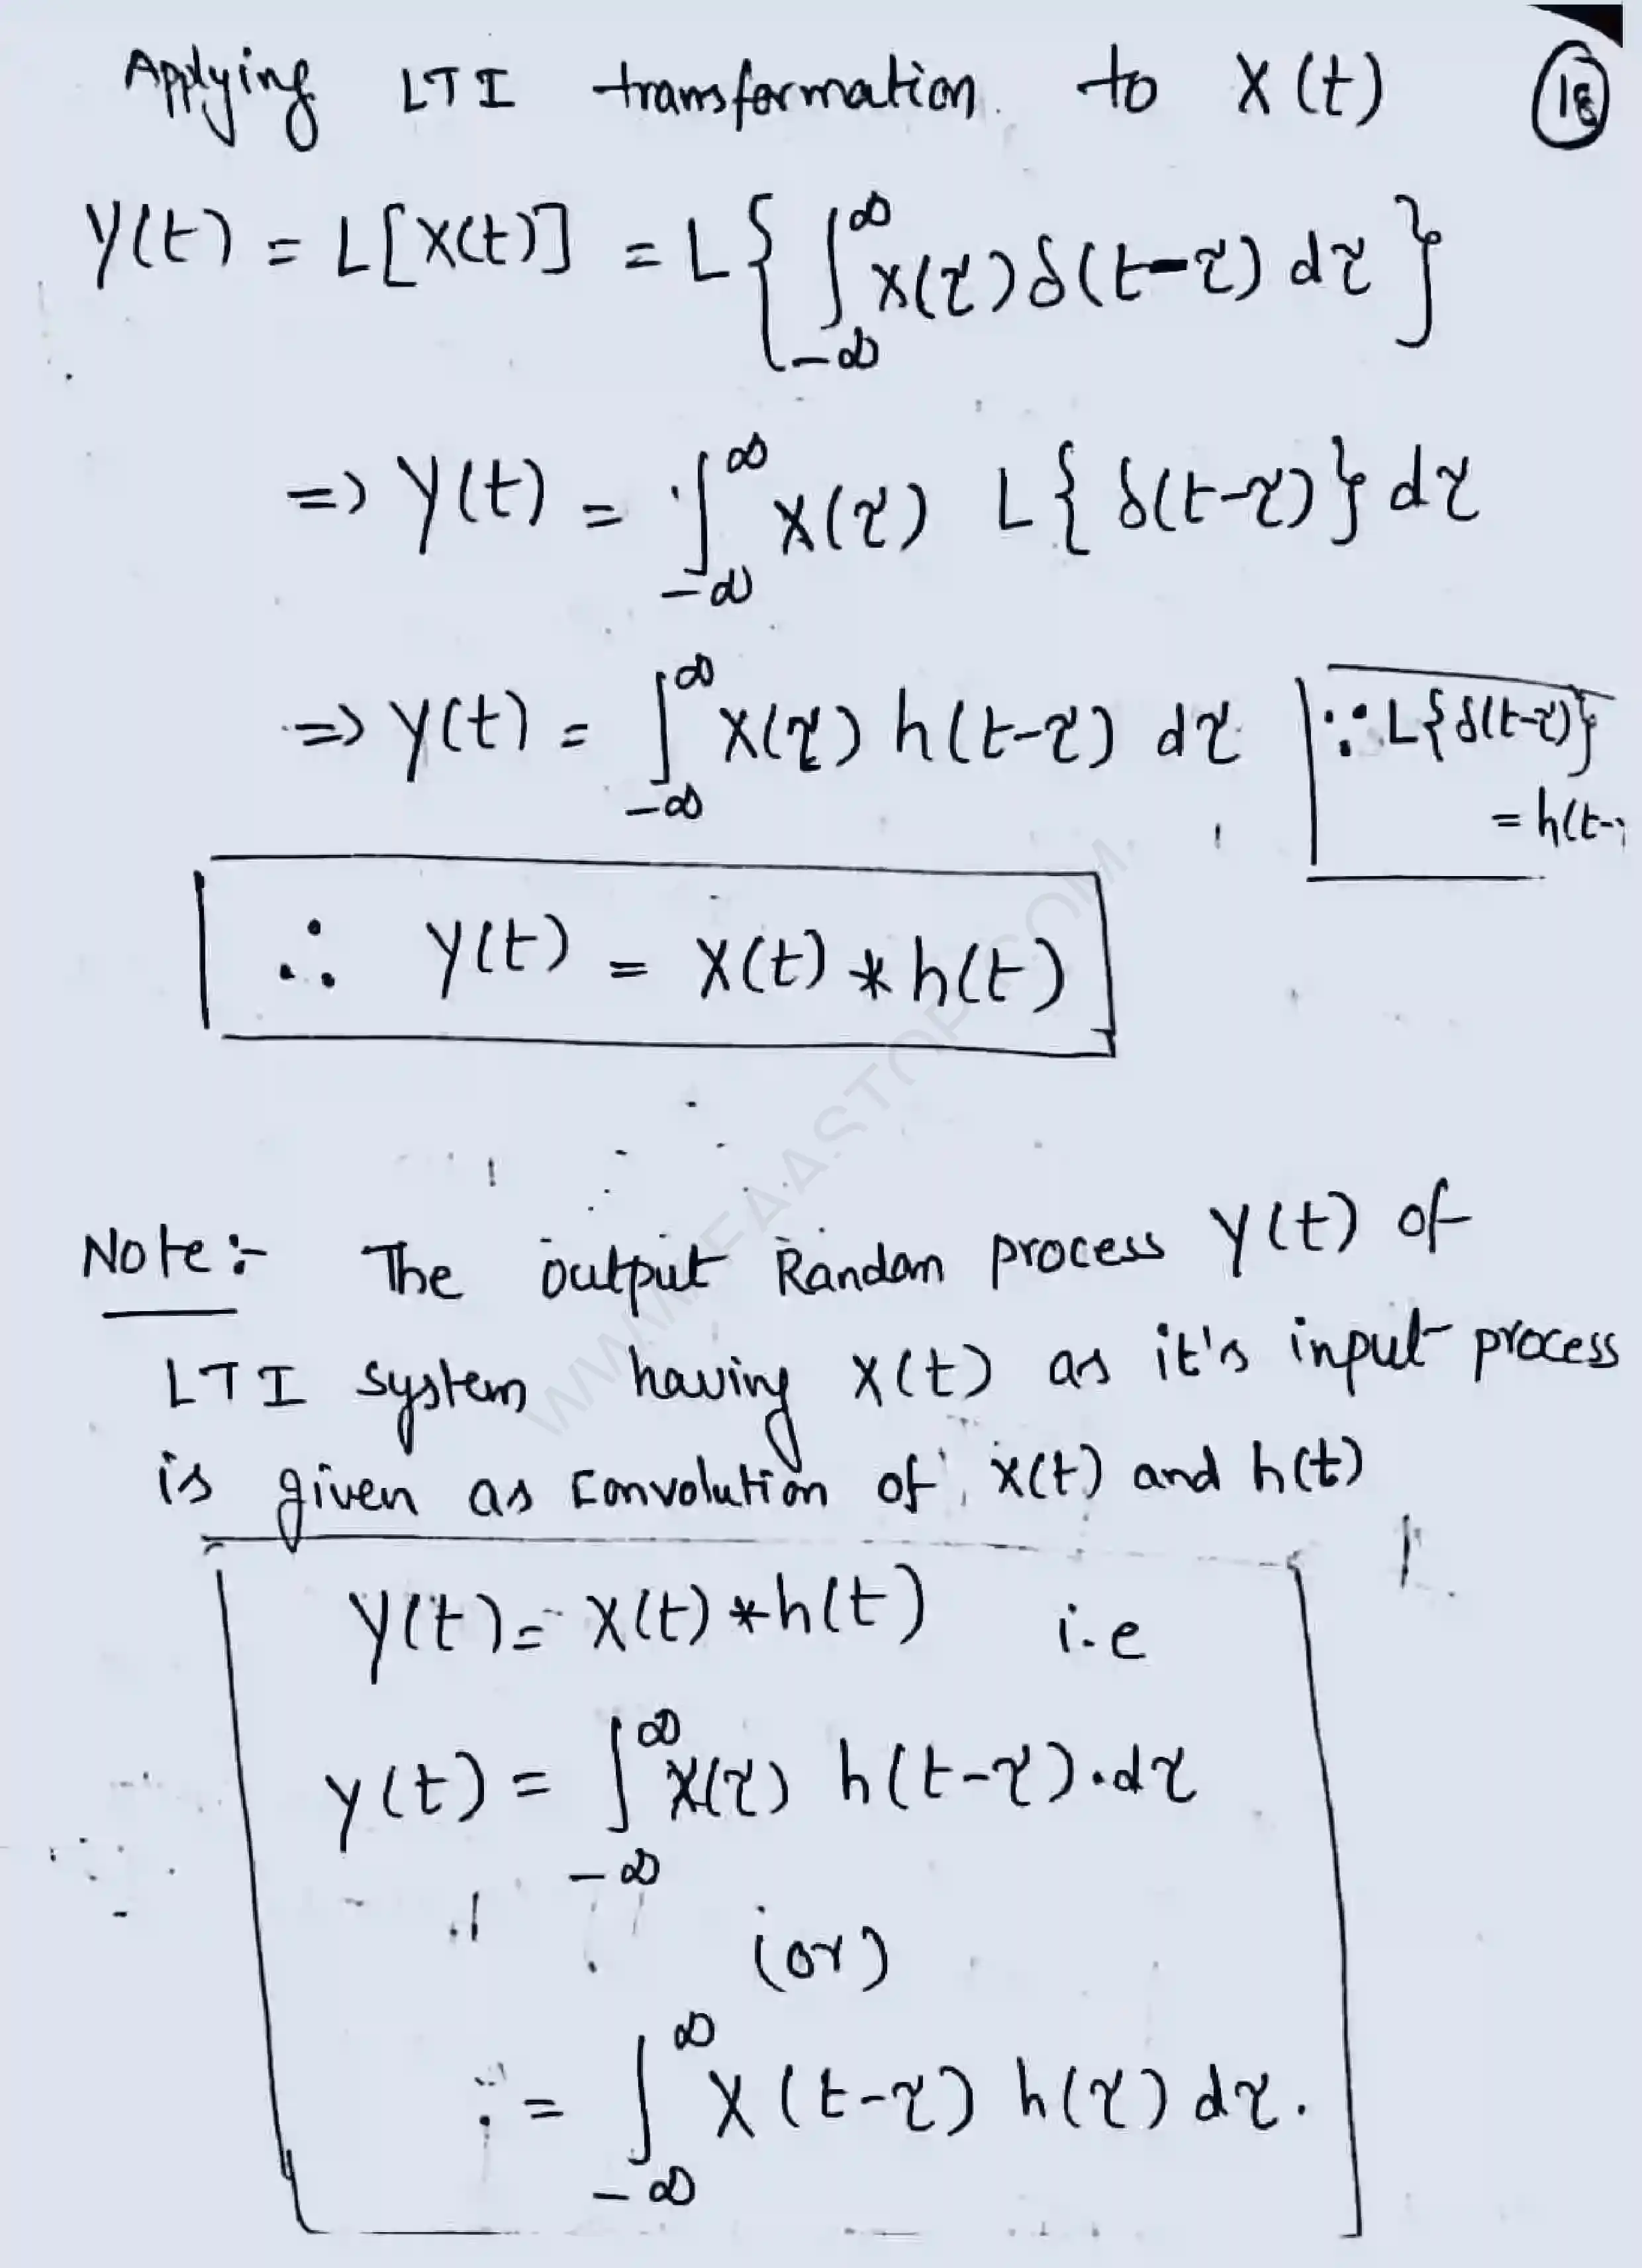 Applying LTI transformation to X(t)
Y(t) = L[X(t)] = L{ ∫_{-∞}^{∞} X(τ) δ(t-τ) dτ }
=> Y(t) = ∫_{-∞}^{∞} X(τ) L{ δ(t-τ)} dτ
=> Y(t) = ∫_{-∞}^{∞} X(τ) h(t-τ) dτ ∵ L{δ(t-τ)}
= h(t-
∴ Y(t) = X(t) * h(t)
Note:- The output Random process Y(t) of
LTI system having X(t) as it's input process
is given as convolution of X(t) and h(t)
Y(t) = X(t) * h(t) i.e
Y(t) = ∫_{-∞}^{∞} X(τ) h(t-τ).dτ
(or)
= ∫_{-∞}^{∞} X(t-τ) h(τ) dτ.